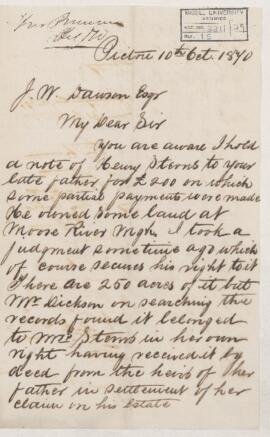 McGILL UNIVERSITY
ARCHIVES
ACC. NO. 2211/79
REF. 15
Pictou 10th Oct. 1870
J. W. Dawson Esqr
My Dear Sir
You are aware I hold
a note of Henry Sterns to your
late father for £200 on which
some partial payments were made
He owned some land at
Moose River Mgh. I took a
judgment sometime ago which
of course secures his right to it
There are 250 acres of it but
Mr Dickson on searching the
records found it belonged
to Mrs Sterns in her own
right having received it by
deed from the heirs of her
father in settlement of her
claim on his Estate